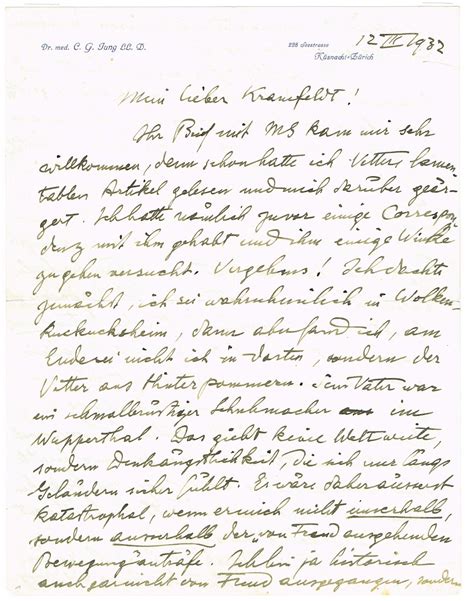 Dr. med. C. G. Jung LL. D.
228 Seestrasse
Küsnacht-Zürich
12 III 1932
Mein lieber Kranefeldt!
Ihr Brief mit MS kam mir sehr
willkommen, denn schon hatte ich Vetters lamen-
tablen Artikel gelesen und mich darüber geär-
gert. Ich hatte nämlich zuvor einige Correspon-
denz mit ihm gehabt und ihm einige Winke
zu geben versucht. Vergebens! Ich dachte
zunächst, ich sei wahrscheinlich in Wolken-
kuckucksheim, dann aber fand ich, am
Ende sei nicht ich in dorten, sondern der
Vetter aus Hinterpommern. Sein Vater war
ein schmalbrüstiger Schuhmacher im
Wupperthal. Das giebt keine Weltweite,
sondern Denkängstlichkeit, die sich nur längs
Geländern sicher fühlt. Es wäre daher äusserst
katastrophal, wenn er mich nicht innerhalb,
sondern ausserhalb der von Freud ausgehenden
Bewegung anträfe. Ich bin ja historisch
auch gar nicht von Freud ausgegangen, sondern